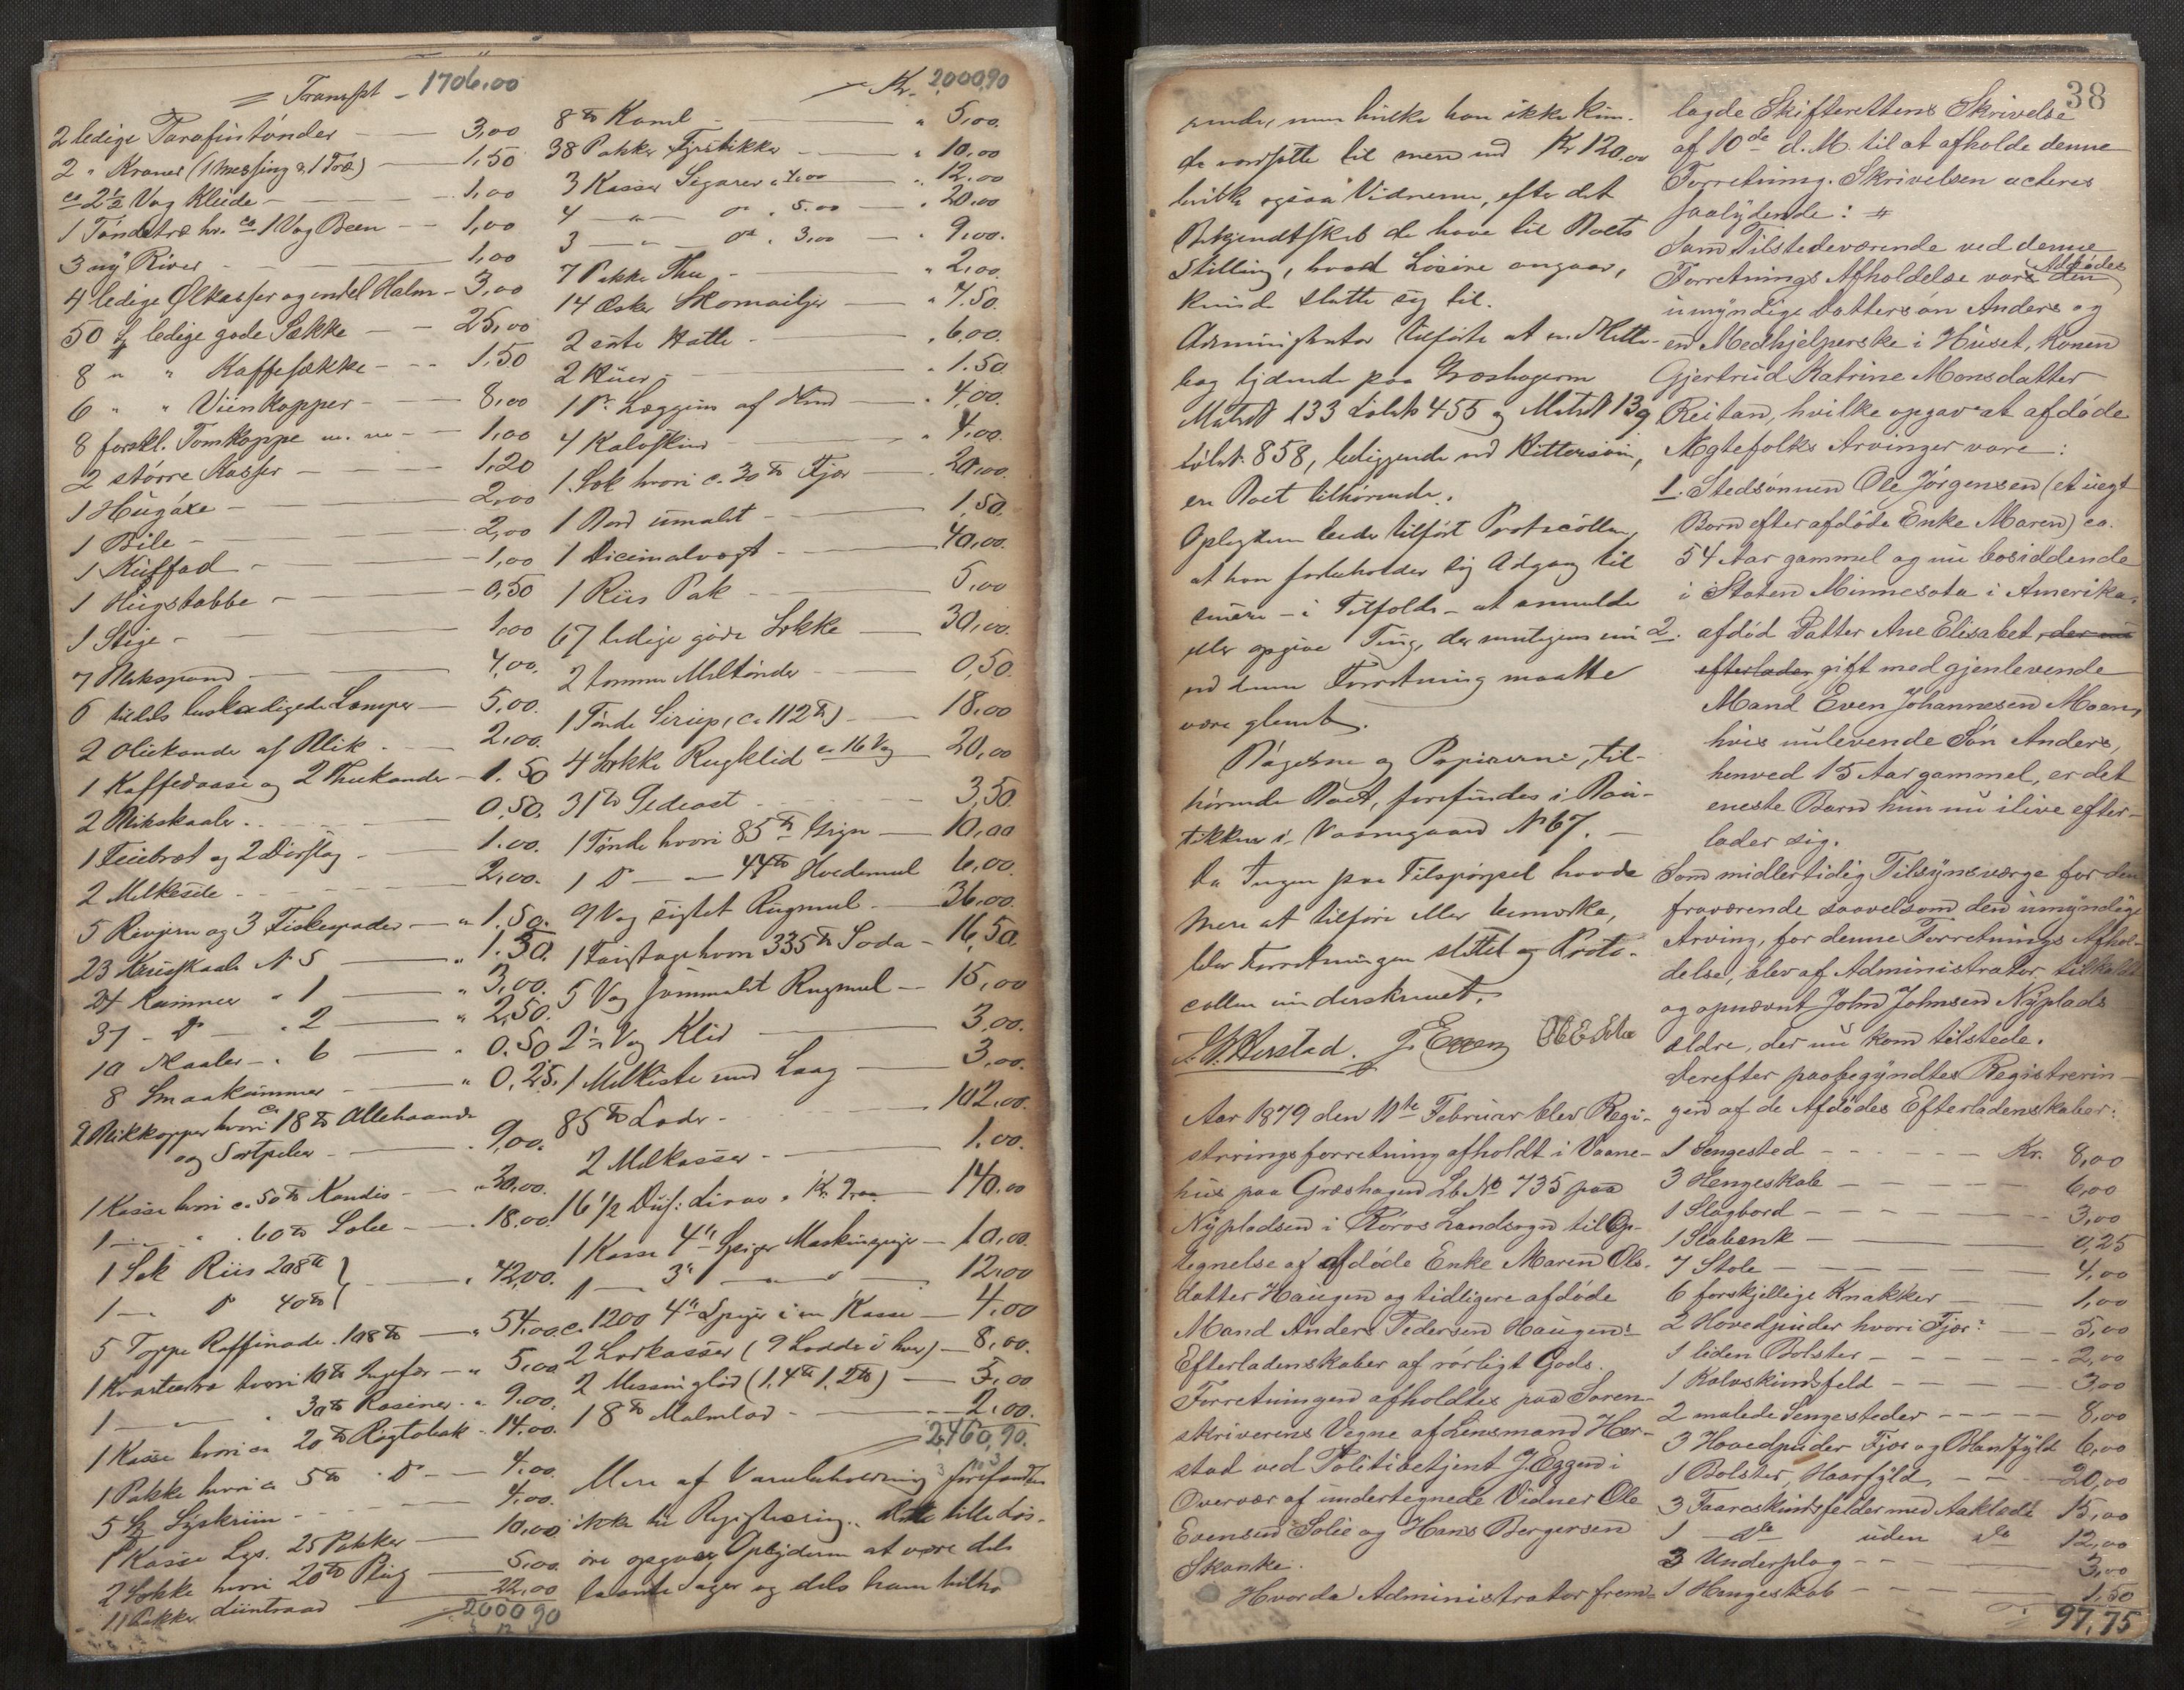 = Transpt - 1706,00
2 ledige Parafintønder — 3,00
2 " Kraner (1 Messing & 1 Træ) — 1,50
ca 2 1/2 Vog Kleide — 1,00
1 Tøndetræ hv. ca 1 Vog Been — 1,00
3 ny River — 1,00
4 ledige Ølkasser og endel Halm — 3,00
50 ledige gode Sække — 25,00
8 " " Kaffesække — 1,50
6 " " Viinkopper — 8,00
8 forskl. Tomkoppe — 1,00
2 større Kasser — 1,20
1 Hugøxe — 2,00
1 Bile — 2,00
1 Kuffad — 1,00
1 Hugstabbe — 0,50
1 Stige — 1,00
7 Blikspand — 4,00.
6 tildels beskadigede Lamper — 5,00.
2 Oliekande af Blik. — 2,00.
1 Kaffedaase og 2 Theekander — 1.50
2 Blikskaale. — 0,50.
1 Feiebræt og 2 Dørslag — 1.00.
2 Melkesile — 2,00.
5 Rivjern og 3 Fiskespader — " 1.50.
23 Krusskaale N 5 — " 1.30.
24 Kummer " 1 — " 3,00.
37 - Do — " 2 — " 2,50.
10 Skaaler — " 6 — " 0.50
8 Smaakummer — " 0,25.
2 Blikkopper hvori ca 18 ℔ Allehaande
og Sortpeber — 9,00.
1 Kasse hvori c. 50 ℔ Kandis — " 30,00.
1 — " 60 ℔ Solee — 18.00.
1 Sæk Riis 208 ℔
1 — Do 40 ℔ } — " 42,00.
5 Toppe Raffinade 108 ℔ — " 54,00.
1 Kvarteltræ hvori 10 ℔ Ingefær — " 5,00
1 — " 30 ℔ Rosiner — " 9.00.
1 Kasse hvori ca 20 ℔ Røgtobak — 14.00.
1 Pakke hvori ca 5 ℔ Do — 4,00.
5 Lyskriin — 4,00.
1 Kasse Lys. 25 Pakker — 10,00
2 Sække hvori 20 ℔ Plug — 5,00
11 Pakker Liintraad — 22,00
2000 90
— Kr. 2,000,90
8 ℔ Kanel — " 5,00.
38 Pakker Fyrstikker — " 10,00
3 Kasser Sigarer a 4,00 — " 12.00
4 — " — Do a 5.00 — " 20.00
3 — " — Do a 3,00 — " 9,00.
7 Pakke Thee — " 2,00.
14 Æsker Skomailjer — " 7.50.
2 sorte Hatte — " 6,00.
2 Huer — " 1.50
1 Pr. Læggins af Skind — " 4,00.
4 Kalvskind — " 4.00.
1 Sæk hvori c. 30 ℔ Fjær — 20,00.
1 Bord umalet — 1,50.
1 Dicimalvægt — 40,00.
1 Riis Pak — 5,00
67 ledige gode Sække — 30,00.
2 tomme Meltønder — 0,50.
1 Tønde Sirup, (c. 112 ℔) — 18,00
4 Sække Rugklid ca 16 Vog — 20,00
31 ℔ Gedeost — 3,50.
1 Tønde hvori 85 ℔ Gryn — 10,00
1 Do — " 44 ℔ Hvedemel 6,00.
9 Vog sigtet Rugmel — 36,00.
1 Fustage hvori 335 ℔ Soda — 16,50.
5 Vog sammalt Rugmel — 15,00
2 1/2 Vog Klid — 3,00.
1 Melkiste med Laag — 3,00.
85 ℔ Læder — 102.00.
2 Melkasser — 1.00.
16 1/2 Dus: Livae a Kr. 9,00 — 140,00
1 Kasse 4" Spiger Maskinspiger — 10,00.
1 — 3" — " — 12,00
c. 1200 4" Spiger i en Kasse — 4,00
2 Lodkasser (9 Lodde i hver) — 8,00.
2 Messinglod (1. 4 ℔ 1. 2 ℔) — 5,00
1 8 ℔ Malmlod — 2,00.
2,460,90.
Mere af Varebeholdning forefandtes
ikke til Registrering. Dette lille Løs-
øre opgav Oplyderen at være dels
laante Sager og dels ham tilhø-
rende, men hvilke han ikke kun-
de værdsætte til mere end Kr 120,00
hvilke ogsaa Vidnerne, efter det
Bekjendtskab de have til Boets
Stilling, hvad Løsøre angaar,
kunde slutte sig til.
Administrator tilførte at en Mølle-
bag lydende paa Græshagerne
Matrl 133 Løbnr 455 og Matrl 139
Løbnr 858, beliggende ved Hittersøien,
er Boet tilhørende.
Oplysteren havde tilført Protocollen,
at han forbeholder sig Adgang til
senere - i Tilfælde - at anmelde
eller opgive Ting, der muligens nu
ved denne Forretning maatte
være glemt.
Bøgerne og Papirerne, til-
hørende Boet, forefindes i Bou-
tikken i Vaanegaard No 67. —
Da Ingen paa Tilspørgsel havde
mere at tilføre eller bemærke,
blev Forretningen sluttet og Proto-
collen underskrevet.
Herstad. J. Eggen
Aar 1879 den 11te Februar blev Regi-
streringsforretning afholdt i Vaane-
hus paa Græshagen Lb No 735 paa
Nypladsen i Røros Landsogn til Op-
tegnelse af afdøde Enke Maren Ols-
datter Haugen og tidligere afdøde
Mand Anders Pedersen Haugens
Efterladenskaber af rørligt Gods.
Forretningen afholdtes paa Soren-
skriverens Vegne af Lensmand Her-
stad ved Politibetjent J. Eggen i
Overvær af undertegnede Vidner Ole
Evensen Solie og Hans Bergersen
Skanke.
Hvorda Administrator frem-
38
lagde Skifterettens Skrivelse
af 10de d. M. til at afholde denne
Forretning. Skrivelsen acteres
saalydende: #
Som Tilstedeværende ved denne
Forretnings Afholdelse vare den Afdødes
umyndige Dattersøn Anders og
en Medhjelperske i Huset, Konen
Gjertrud Katrine Monsdatter
Reitan, hvilke opgav at afdøde
Ægtefolks Arvinger vare:
1. Stedsønnen Ole Jørgensen (et uegt
Barn efter afdøde Enke Maren) ca.
54 Aar gammel og nu bosiddende
i Staten Minnesota i Amerika.
2. afdød Datter Ane Elisabet, der nu
efterlader gift med gjenlevende
Mand Even Johannesen Moen,
hvis nulevende Søn Anders,
henved 15 Aar gammel, er det
eneste Barn hun nu ilive efter-
lader sig.
Som midlertidig Tilsynsværge for den
fraværende saavelsom den umyndige
Arving, for denne Forretnings Afhol-
delse, blev af Administrator tilkaldt
og opnævnt John Johnsen Nyplads
ældre, der nu kom tilstede.
Derefter paabegyndtes Registrerin-
gen af de Afdødes Efterladenskaber:
1 Sengested — Kr. 8,00
3 Hengeskab — 6,00
1 Slagbord — 3,00
1 Slabenk — 0,25
7 Stole — 4,00
6 forskjellige Knakker — 1,00
2 Hovedpuder hvori Fjær — 5,00
1 liden Bolster — 2,00
1 Kalvskindsfeld — 3,00
2 malede Sengesteder — 8,00
3 Hovedpuder Fjær og Blanfyld 6,00
1 Bolster, Haarfyld, — 20,00
3 Faareskindsfelder med Aaklæde 15,00
1 — do uden do 12,00
3 Underplag — 3,00
1 Hengeskab — 1,50
97,75